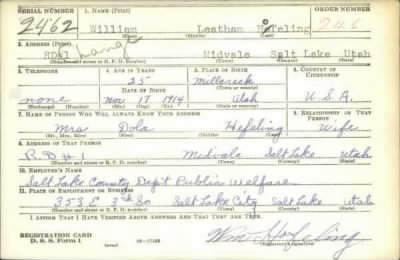 SERIAL NUMBER 1. NAME (Print) ORDER NUMBER
2462 William Leatham Hefeling 246
(First) (Middle) (Last)
2. ADDRESS (Print)
RD#1 Midvale Salt Lake Utah
(Number and street or R. F. D. number) (Town) (County) (State)
3. TELEPHONE 4. AGE IN YEARS 5. PLACE OF BIRTH 6. COUNTRY OF CITIZENSHIP
25 Millcreek
DATE OF BIRTH
none Nov 17 1914 Utah U.S.A.
(Exchange) (Number) (Mo.) (Day) (Yr.) (State or country)
7. NAME OF PERSON WHO WILL ALWAYS KNOW YOUR ADDRESS 8. RELATIONSHIP OF THAT PERSON
Mrs Dola Hefeling Wife
(Mr., Mrs., Miss) (First) (Middle) (Last)
9. ADDRESS OF THAT PERSON
R.D #1 Midvale Salt Lake Utah
(Number and street or R. F. D. number) (Town) (County) (State)
10. EMPLOYER'S NAME
Salt Lake County Dep't Public Welfare
11. PLACE OF EMPLOYMENT OR BUSINESS
353 E 3rd So Salt Lake City Salt Lake Utah
(Number and street or R. F. D. number) (Town) (County) (State)
I AFFIRM THAT I HAVE VERIFIED ABOVE ANSWERS AND THAT THEY ARE TRUE.
REGISTRATION CARD
D. S. S. FORM 1 Wm. Hefeling
(over) (Registrant's signature)